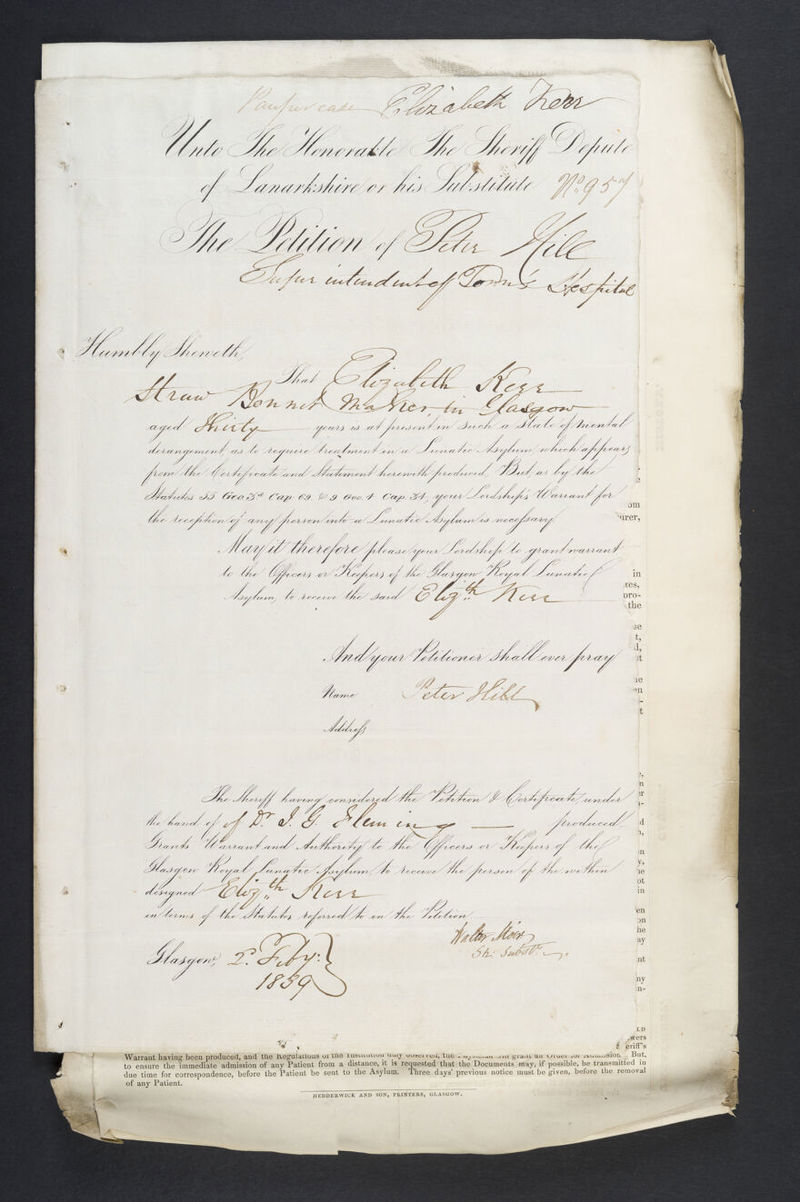 Pauper case Elizabeth Kerr
Unto The Honorable The Sheriff Depute
of Lanarkshire or his Substitute No. 957
The Petition of Peter Hill
Superintendent of Town's Hospital
Humbly Sheweth,
That Elizabeth Kerr
Straw Bonnet Maker, in Glasgow
aged Thirty years is at present in such a state of mental
derangement, as to require treatment in a Lunatic Asylum, which appears
from the Certificate and Statement herewith produced. But, as by the
Statutes 55 Geo. 3d Cap. 69. & 9 Geo. 4 Cap. 34, your Lordship's Warrant for
the reception of any person into a Lunatic Asylum is necessary.
May it therefore please your Lordship to grant warrant
to the Officers or Keepers of the Glasgow Royal Lunatic
Asylum, to receive the said Elizth Kerr
And your Petitioner shall ever pray
Name Peter Hill
Address
The Sheriff having considered the Petition & Certificate, under
the hand of of Dr J. G. Fleming produced
Grants Warrant and Authority to the Officers or Keepers of the
Glasgow Royal Lunatic Asylum, to receive the person of the within
designed Elizth Kerr
in terms of the Statutes referred to in the Petition
Walter Moir
Sh: Subst.
Glasgow, 2. Feby:
1839
Warrant having been produced, and the Regulations of the Institution duly observed, the grant an Order for Admission. But,
to ensure the immediate admission of any Patient from a distance, it is requested that the Documents may, if possible, be transmitted in
due time for correspondence, before the Patient be sent to the Asylum. Three days' previous notice must be given, before the removal
of any Patient.
HEDDERWICK AND SON, PRINTERS, GLASGOW.